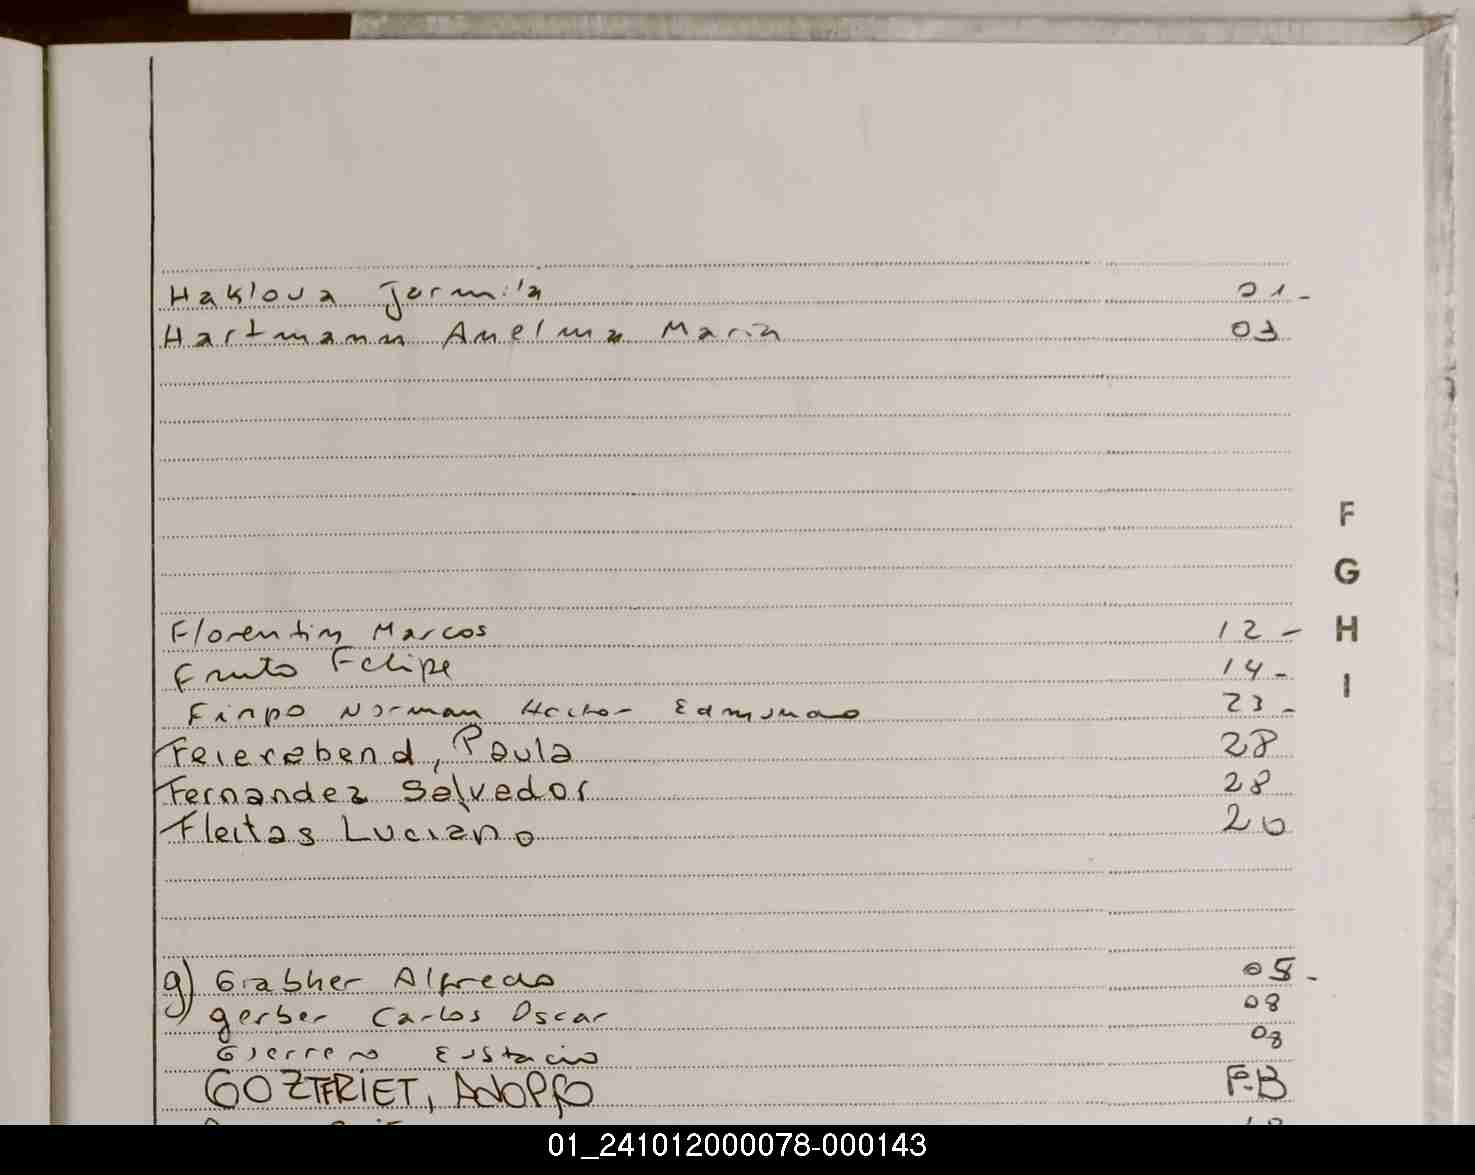 Haklova Jarmila 01-
Hartmann Anelma Maria 03
F
G
H
I
Florentin Marcos 12-
Fruto Felipe 14-
Finpo Norman Hector Edmundo 23-
Feierabend, Paula 28
Fernandez Salvador 28
Fleitas Luciano 20
g) Grabher Alfredo 05-
gerber Carlos Oscar 08
Guerrero Eustacio 08
GOZTFRIET, ADOPFO F-B
01_241012000078-000143